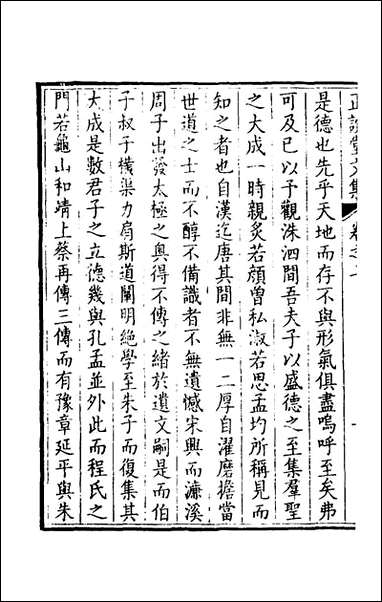 正誼堂文集　卷之一
是德也先乎天地而存不與形氣俱盡嗚呼至矣弗
可及已以予觀洙泗間吾夫子以盛德之至集羣聖
之大成一時親炙若顏曾私淑若思孟均所稱見而
知之者也自漢迄唐其間非無一二厚自濯磨擔當
世道之士而不醇不備識者不無遺憾宋興而濂溪
周子出發太極之奧得不傳之緒於遺文嗣是而伯
子叔子橫渠力肩斯道闡明絕學至朱子而復集其
大成是數君子之立德幾與孔孟並外此而程氏之
門若龜山和靖上蔡再傳三傳而有豫章延平與朱